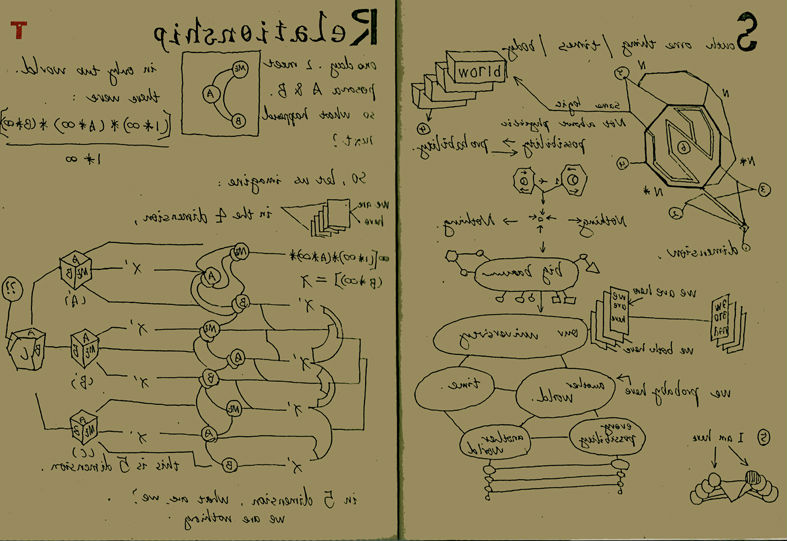 Such one thing / times / body.
world
same logic
Not above physics
possibility → probability.
N
N*
N*
1
2
3
4
5
6
4
dimension.
Nothing ← → Nothing.
big baaum
we are here
we
are
here
we
are
here
we both here
our university
we probably here
another
world.
time.
every
possibility
another
world
5
I am here
Relationship
T
one day. I meet
persona A & B.
so what happend
next?
Me
A
B
in only two world.
there were :
[(1*∞)*(A*∞)*(B*∞)]
1*∞
so, let us imagine :
we are
here
in the 4 dimension,
∞[(1*∞)*(A*∞)*
(B*∞)] = X
Me
A
B
X'
Me
X'
A
X'
B
X'
Me
X'
A
X'
B
X'
A
B
Me
(A')
A
B
Me
(B')
A
B
Me
(C')
A
B
C
??
this is 5 dimension.
in 5 dimension, what are we?
we are nothing